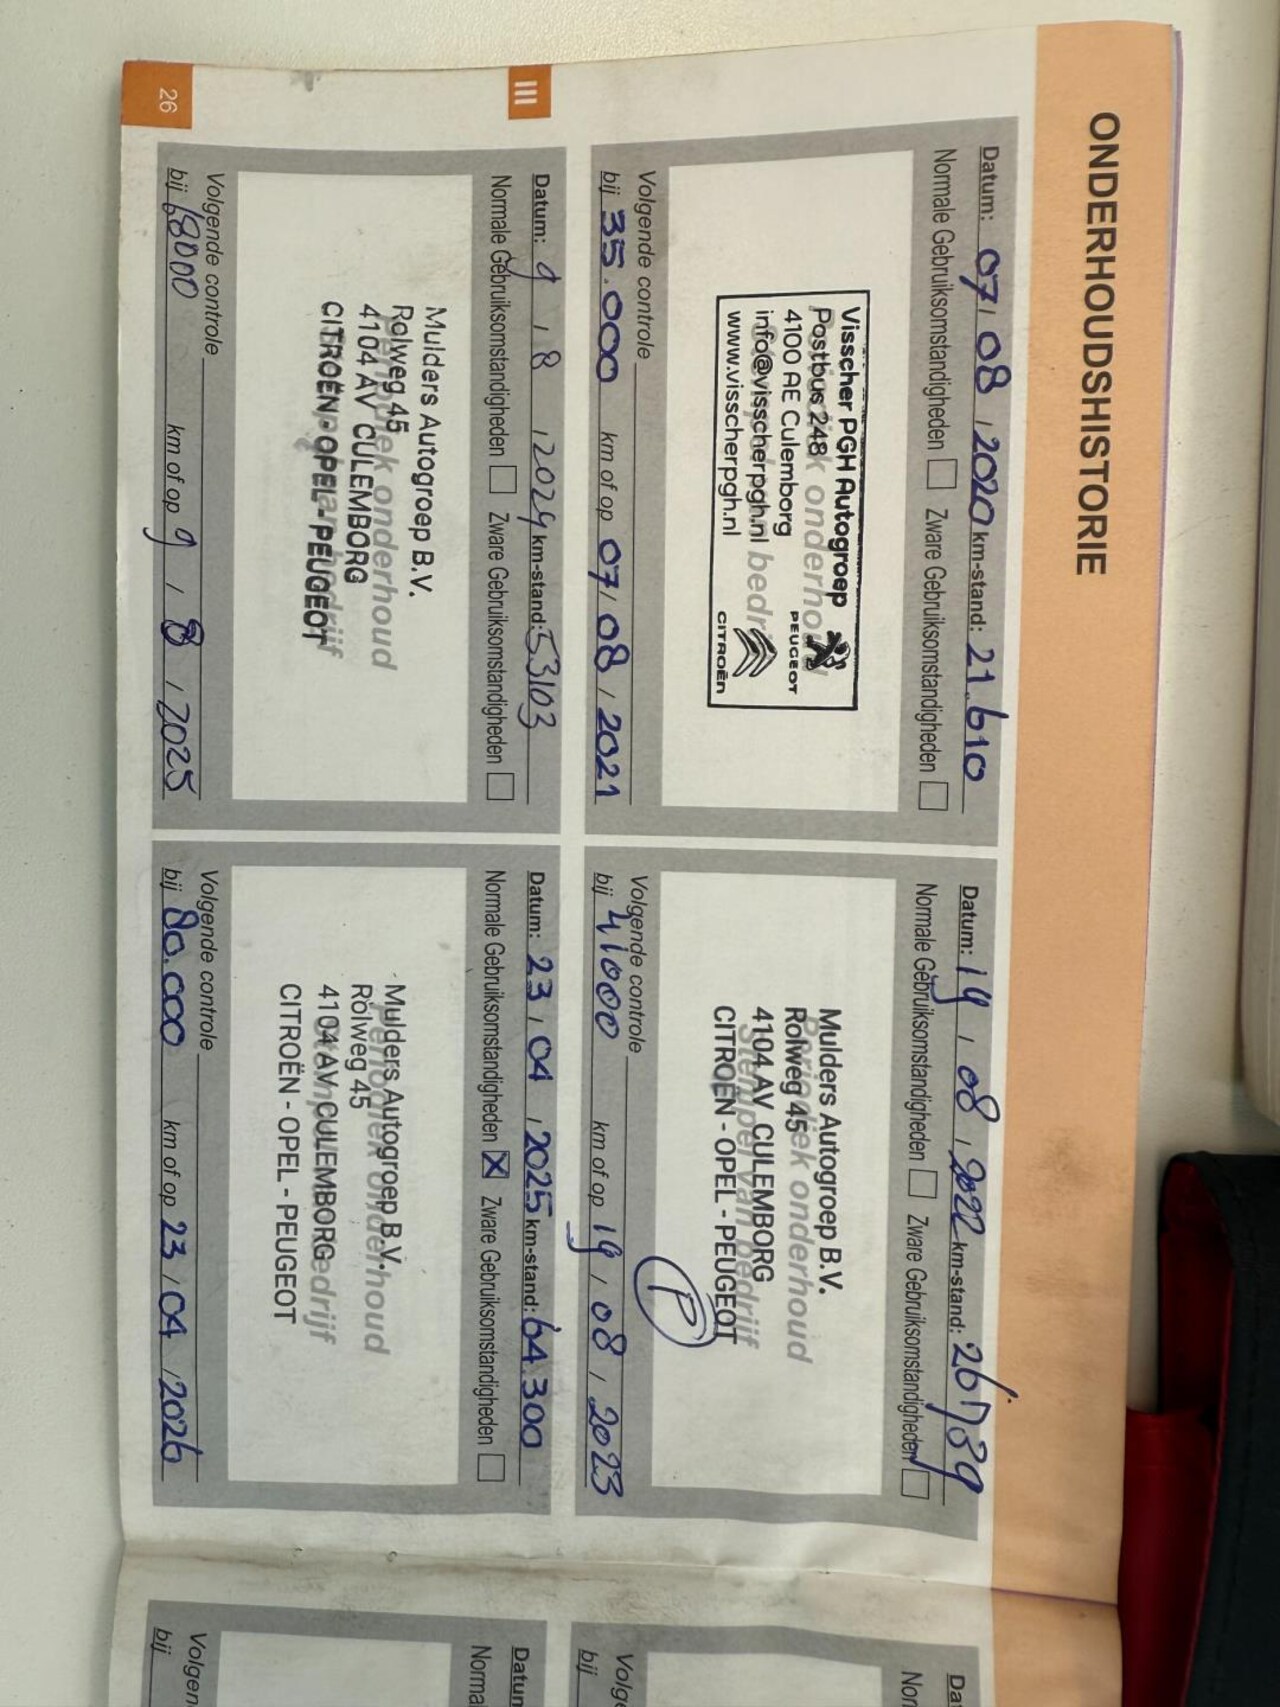 ONDERHOUDSHISTORIE
Datum: 07 / 08 / 2020 km-stand: 21.610
Normale Gebruiksomstandigheden Zware Gebruiksomstandigheden
Visscher PGH Autogroep
Postbus 248
4100 AE Culemborg
info@visscherpgh.nl
www.visscherpgh.nl
PEUGEOT
CITROËN
Volgende controle
bij 35.000 km of op 07 / 08 / 2021
Datum: 19 / 08 / 2022 km-stand: 26789
Normale Gebruiksomstandigheden Zware Gebruiksomstandigheden
Periodiek onderhoud
Stempel van bedrijf
Mulders Autogroep B.V.
Rolweg 45
4104 AV CULEMBORG
CITROËN - OPEL - PEUGEOT
P
Volgende controle
bij 41000 km of op 19 / 08 / 2023
III
Datum: 9 / 8 / 2024 km-stand: 53103
Normale Gebruiksomstandigheden Zware Gebruiksomstandigheden
Mulders Autogroep B.V.
Rolweg 45
4104 AV CULEMBORG
CITROËN - OPEL - PEUGEOT
Volgende controle
bij 68000 km of op 9 / 8 / 2025
Datum: 23 / 04 / 2025 km-stand: 64.300
Normale Gebruiksomstandigheden X Zware Gebruiksomstandigheden
Mulders Autogroep B.V.
Rolweg 45
4104 AV CULEMBORG
CITROËN - OPEL - PEUGEOT
Volgende controle
bij 80.000 km of op 23 / 04 / 2026
26
Da
Nor
Volge
bij
Datun
Norma
Volgen
bij